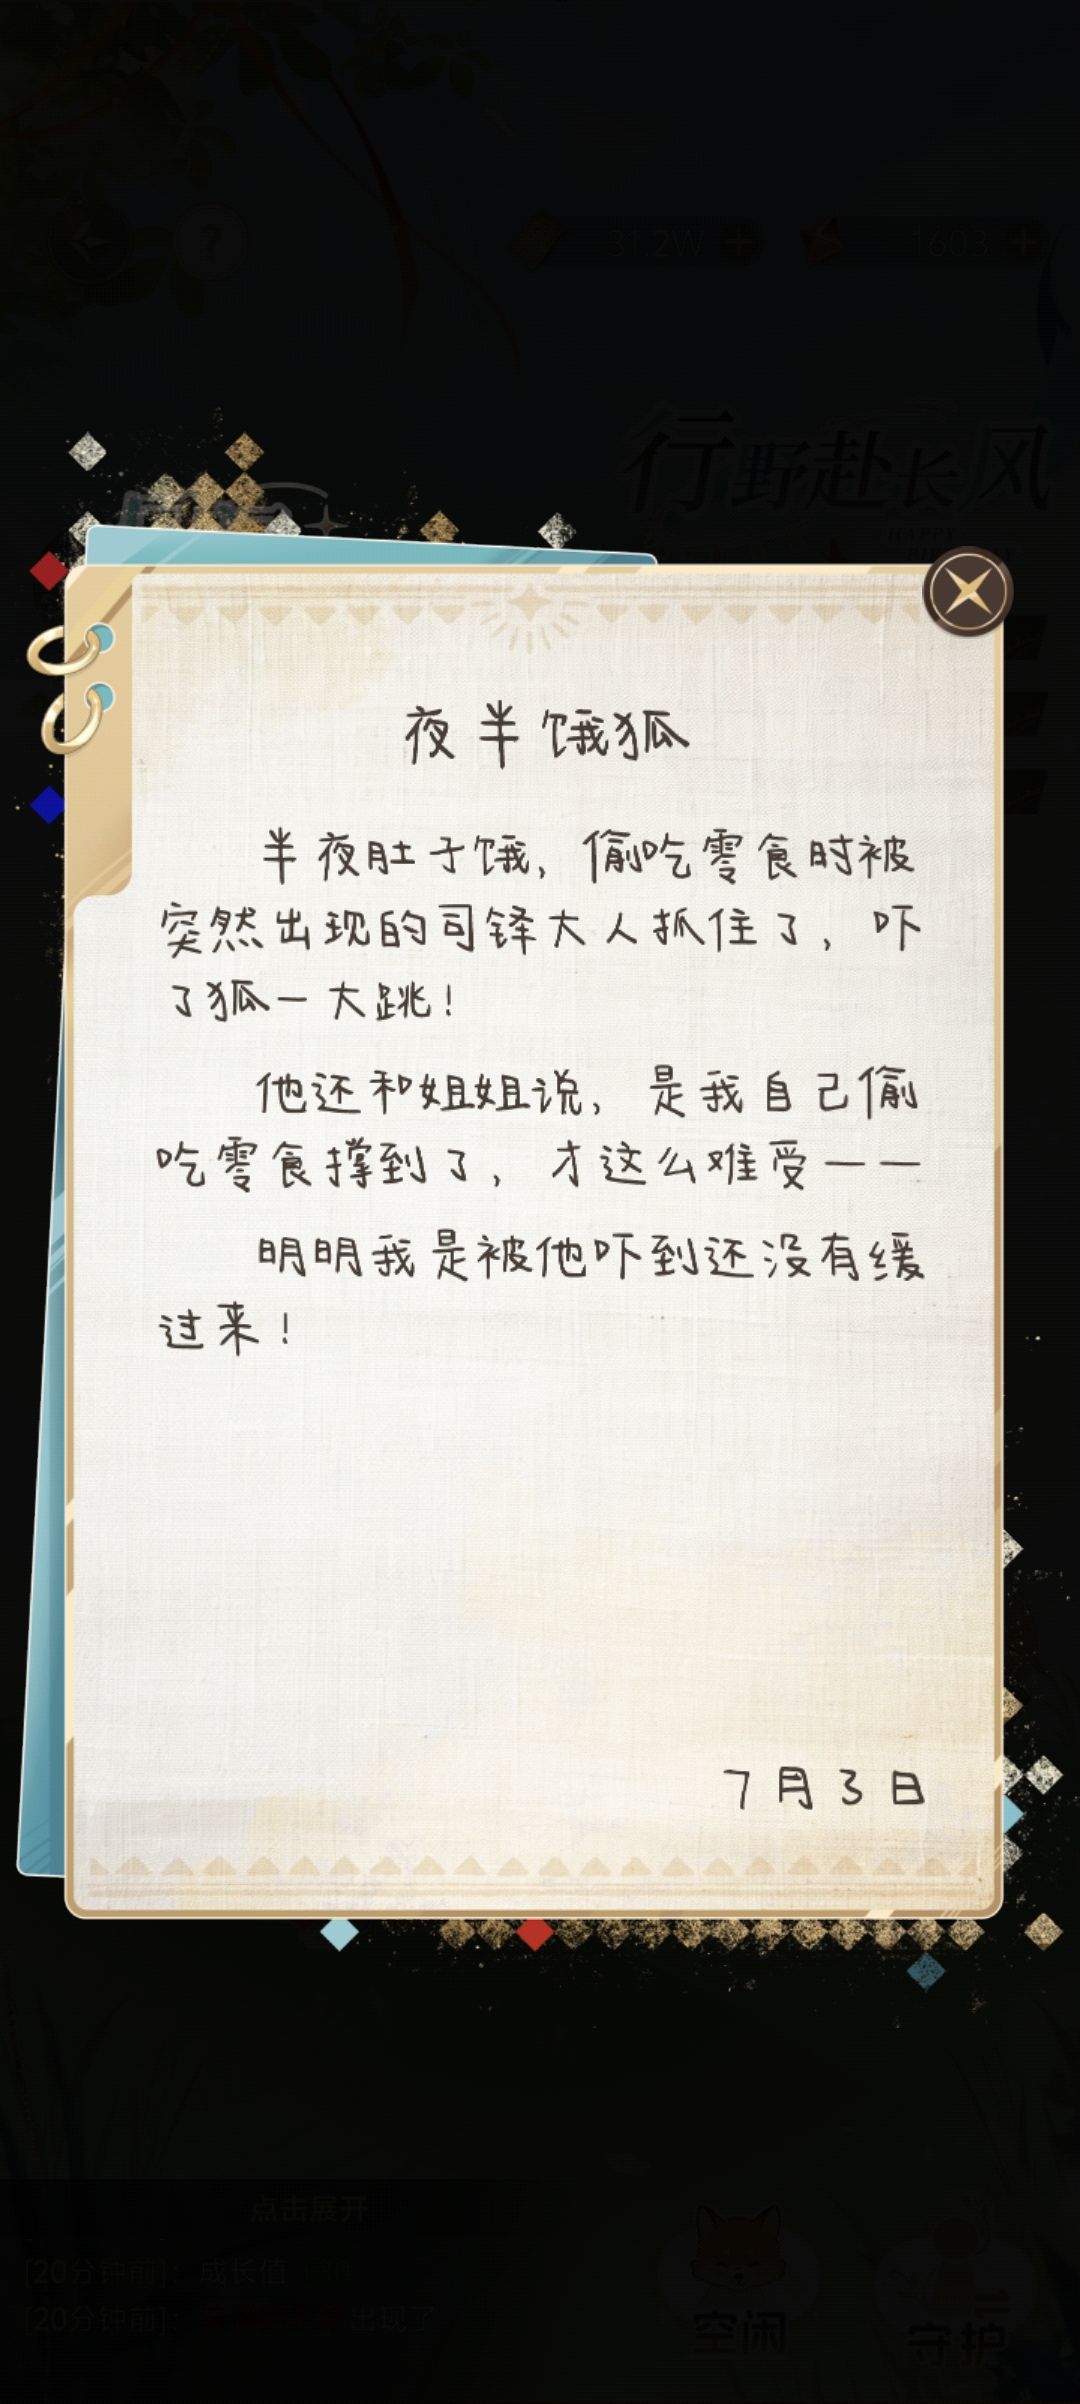 31.2W
1603
行野赴长风
HAPPY
夜半饿狐
半夜肚子饿，偷吃零食时被
突然出现的司铎大人抓住了，吓
了狐一大跳！
他还和姐姐说，是我自己偷
吃零食撑到了，才这么难受——
明明我是被他吓到还没有缓
过来！
7月3日
点击展开
[20分钟前]：成长值
[20分钟前]：
出现了
空闲
守护